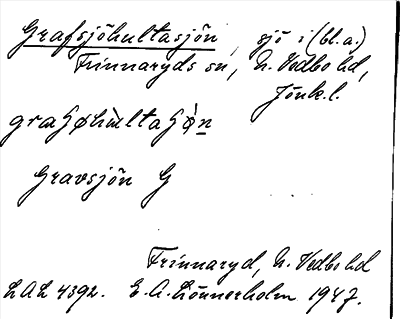 Grafsjöhultasjön, sjö i (bl.a.)
Frinnaryds sn, N. Vedbo hd,
Jönk.l.
Gravsjön G
Frinnaryd, N. Vedbo hd
LAL 4392. E. A. Lönnerholm 1947.